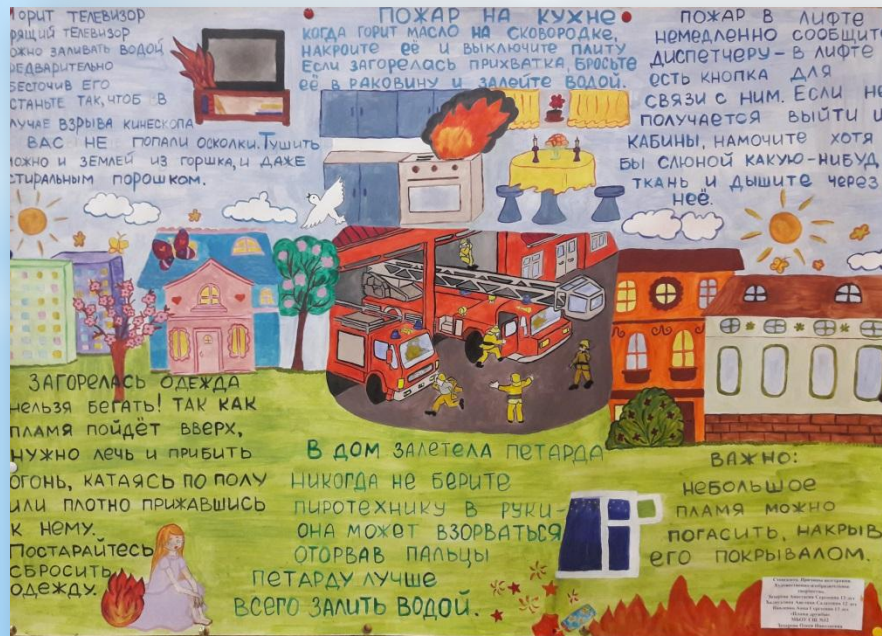 ГОРИТ ТЕЛЕВИЗОР
РЯЩИЙ ТЕЛЕВИЗОР
ОЖНО ЗАЛИВАТЬ ВОДОЙ
ЕДВАРИТЕЛЬНО
БЕСТОЧИВ ЕГО
СТАНЬТЕ ТАК, ЧТОБ В
ЛУЧАЕ ВЗРЫВА КИНЕСКОПА
ВАС НЕ ПОПАЛИ ОСКОЛКИ. ТУШИТЬ
ОЖНО И ЗЕМЛЕЙ ИЗ ГОРШКА, И ДАЖЕ
СТИРАЛЬНЫМ ПОРОШКОМ.
ПОЖАР НА КУХНЕ
КОГДА ГОРИТ МАСЛО НА СКОВОРОДКЕ,
НАКРОЙТЕ ЕЁ И ВЫКЛЮЧИТЕ ПЛИТУ
ЕСЛИ ЗАГОРЕЛАСЬ ПРИХВАТКА, БРОСЬТЕ
ЕЁ В РАКОВИНУ И ЗАЛЕЙТЕ ВОДОЙ.
ПОЖАР В ЛИФТЕ
НЕМЕДЛЕННО СООБЩИТЕ
ДИСПЕТЧЕРУ - В ЛИФТЕ
ЕСТЬ КНОПКА ДЛЯ
СВЯЗИ С НИМ. ЕСЛИ НЕ
ПОЛУЧАЕТСЯ ВЫЙТИ И
КАБИНЫ, НАМОЧИТЕ ХОТЯ
БЫ СЛЮНОЙ КАКУЮ-НИБУД
ТКАНЬ И ДЫШИТЕ ЧЕРЕЗ
НЕЁ.
ЗАГОРЕЛАСЬ ОДЕЖДА
НЕЛЬЗЯ БЕГАТЬ! ТАК КАК
ПЛАМЯ ПОЙДЁТ ВВЕРХ,
НУЖНО ЛЕЧЬ И ПРИБИТЬ
ОГОНЬ, КАТАЯСЬ ПО ПОЛУ
ИЛИ ПЛОТНО ПРИЖАВШИСЬ
К НЕМУ.
ПОСТАРАЙТЕСЬ
СБРОСИТЬ
ОДЕЖДУ.
В ДОМ ЗАЛЕТЕЛА ПЕТАРДА
НИКОГДА НЕ БЕРИТЕ
ПИРОТЕХНИКУ В РУКИ-
ОНА МОЖЕТ ВЗОРВАТЬСЯ
ОТОРВАВ ПАЛЬЦЫ
ПЕТАРДУ ЛУЧШЕ
ВСЕГО ЗАЛИТЬ ВОДОЙ.
ВАЖНО:
НЕБОЛЬШОЕ
ПЛАМЯ МОЖНО
ПОГАСИТЬ, НАКРЫВ
ЕГО ПОКРЫВАЛОМ.